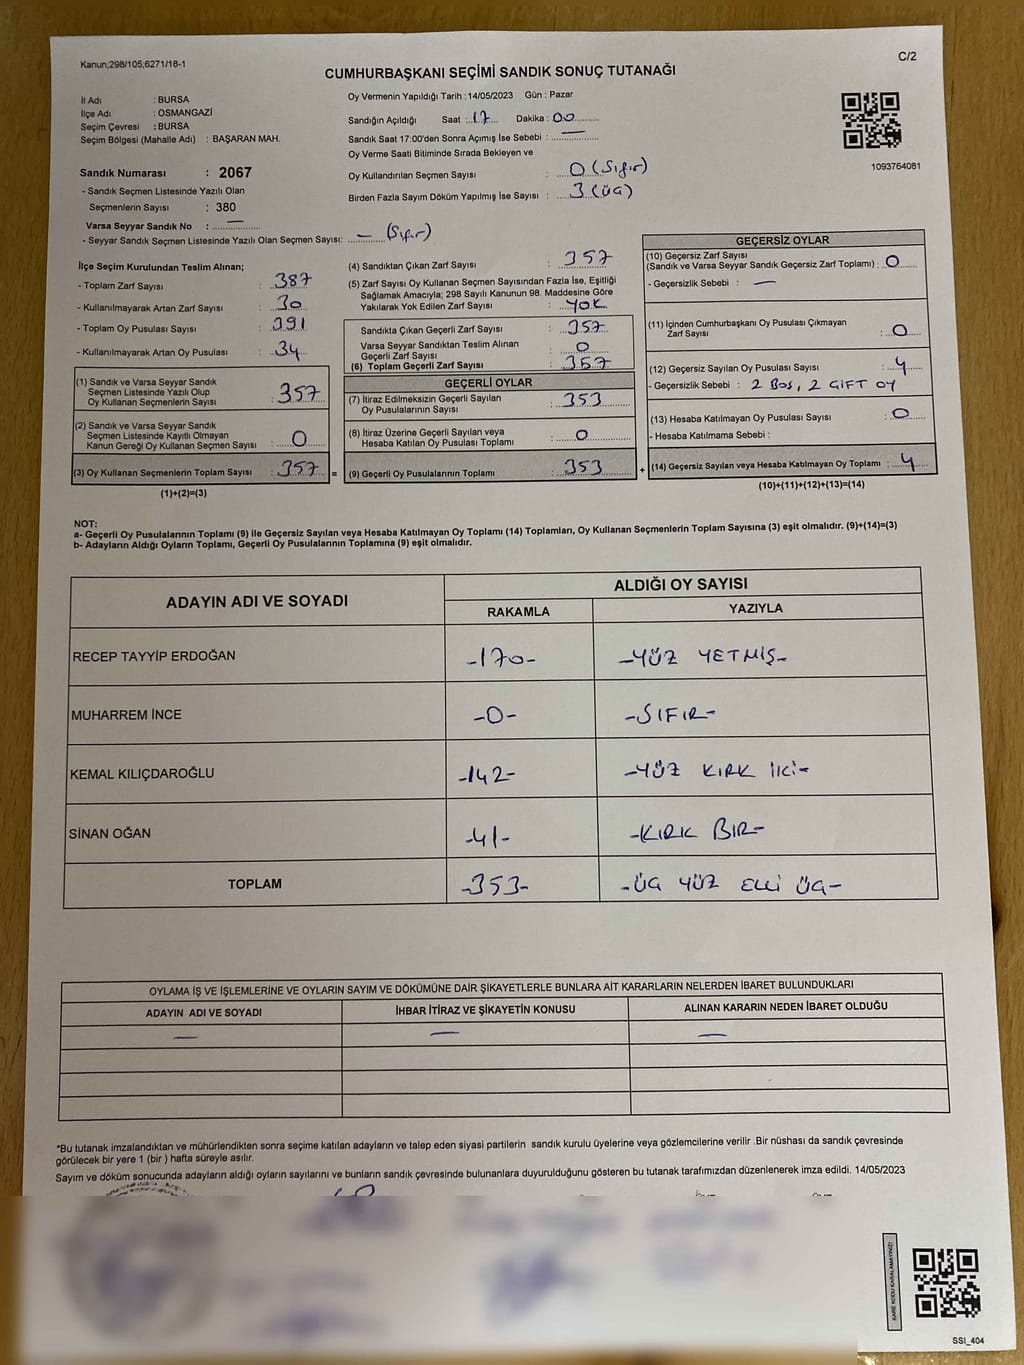 Kanun;298/105;6271/18-1
C/2
CUMHURBAŞKANI SEÇİMİ SANDIK SONUÇ TUTANAĞI
İl Adı : BURSA
İlçe Adı : OSMANGAZİ
Seçim Çevresi : BURSA
Seçim Bölgesi (Mahalle Adı) : BAŞARAN MAH.
Oy Vermenin Yapıldığı Tarih : 14/05/2023 Gün : Pazar
Sandığın Açıldığı Saat : 17 Dakika : 00
Sandık Saat 17:00'den Sonra Açımış İse Sebebi : —
Oy Verme Saati Bitiminde Sırada Bekleyen ve
Oy Kullandırılan Seçmen Sayısı : 0 (Sıfır)
Birden Fazla Sayım Döküm Yapılmış İse Sayısı : 3 (ÜÇ)
1093764081
Sandık Numarası : 2067
- Sandık Seçmen Listesinde Yazılı Olan
Seçmenlerin Sayısı : 380
Varsa Seyyar Sandık No : —
- Seyyar Sandık Seçmen Listesinde Yazılı Olan Seçmen Sayısı: — (Sıfır)
İlçe Seçim Kurulundan Teslim Alınan;
- Toplam Zarf Sayısı : 387
- Kullanılmayarak Artan Zarf Sayısı : 30
- Toplam Oy Pusulası Sayısı : 391
- Kullanılmayarak Artan Oy Pusulası : 34
(1) Sandık ve Varsa Seyyar Sandık
Seçmen Listesinde Yazılı Olup
Oy Kullanan Seçmenlerin Sayısı : 357
(2) Sandık ve Varsa Seyyar Sandık
Seçmen Listesinde Kayıtlı Olmayan
Kanun Gereği Oy Kullanan Seçmen Sayısı : 0
(3) Oy Kullanan Seçmenlerin Toplam Sayısı : 357 =
(1)+(2)=(3)
(4) Sandıktan Çıkan Zarf Sayısı : 357
(5) Zarf Sayısı Oy Kullanan Seçmen Sayısından Fazla İse, Eşitliği
Sağlamak Amacıyla; 298 Sayılı Kanunun 98. Maddesine Göre
Yakılarak Yok Edilen Zarf Sayısı : YOK
Sandıkta Çıkan Geçerli Zarf Sayısı : 357
Varsa Seyyar Sandıktan Teslim Alınan
Geçerli Zarf Sayısı : 0
(6) Toplam Geçerli Zarf Sayısı : 357
GEÇERLİ OYLAR
(7) İtiraz Edilmeksizin Geçerli Sayılan
Oy Pusulalarının Sayısı : 353
(8) İtiraz Üzerine Geçerli Sayılan veya
Hesaba Katılan Oy Pusulası Toplamı : 0
(9) Geçerli Oy Pusulalarının Toplamı : 353 +
GEÇERSİZ OYLAR
(10) Geçersiz Zarf Sayısı
(Sandık ve Varsa Seyyar Sandık Geçersiz Zarf Toplamı) : 0
- Geçersizlik Sebebi : —
(11) İçinden Cumhurbaşkanı Oy Pusulası Çıkmayan
Zarf Sayısı : 0
(12) Geçersiz Sayılan Oy Pusulası Sayısı : 4
- Geçersizlik Sebebi : 2 BOŞ, 2 ÇİFT OY
(13) Hesaba Katılmayan Oy Pusulası Sayısı : 0
- Hesaba Katılmama Sebebi :
(14) Geçersiz Sayılan veya Hesaba Katılmayan Oy Toplamı : 4
(10)+(11)+(12)+(13)=(14)
NOT:
a- Geçerli Oy Pusulalarının Toplamı (9) ile Geçersiz Sayılan veya Hesaba Katılmayan Oy Toplamı (14) Toplamları, Oy Kullanan Seçmenlerin Toplam Sayısına (3) eşit olmalıdır. (9)+(14)=(3)
b- Adayların Aldığı Oyların Toplamı, Geçerli Oy Pusulalarının Toplamına (9) eşit olmalıdır.
ADAYIN ADI VE SOYADI
ALDIĞI OY SAYISI
RAKAMLA YAZIYLA
RECEP TAYYİP ERDOĞAN -170- -YÜZ YETMİŞ-
MUHARREM İNCE -0- -SIFIR-
KEMAL KILIÇDAROĞLU -142- -YÜZ KIRK İKİ-
SİNAN OĞAN -41- -KIRK BİR-
TOPLAM -353- -ÜÇ YÜZ ELLİ ÜÇ-
OYLAMA İŞ VE İŞLEMLERİNE VE OYLARIN SAYIM VE DÖKÜMÜNE DAİR ŞİKAYETLERLE BUNLARA AİT KARARLARIN NELERDEN İBARET BULUNDUKLARI
ADAYIN ADI VE SOYADI İHBAR İTİRAZ VE ŞİKAYETİN KONUSU ALINAN KARARIN NEDEN İBARET OLDUĞU
— — —
*Bu tutanak imzalandıktan ve mühürlendikten sonra seçime katılan adayların ve talep eden siyasi partilerin sandık kurulu üyelerine veya gözlemcilerine verilir .Bir nüshası da sandık çevresinde
görülecek bir yere 1 (bir ) hafta süreyle asılır.
Sayım ve döküm sonucunda adayların aldığı oyların sayılarını ve bunların sandık çevresinde bulunanlara duyurulduğunu gösteren bu tutanak tarafımızdan düzenlenerek imza edildi. 14/05/2023
KARE KODU KARALAMAYINIZ!
SSI_404